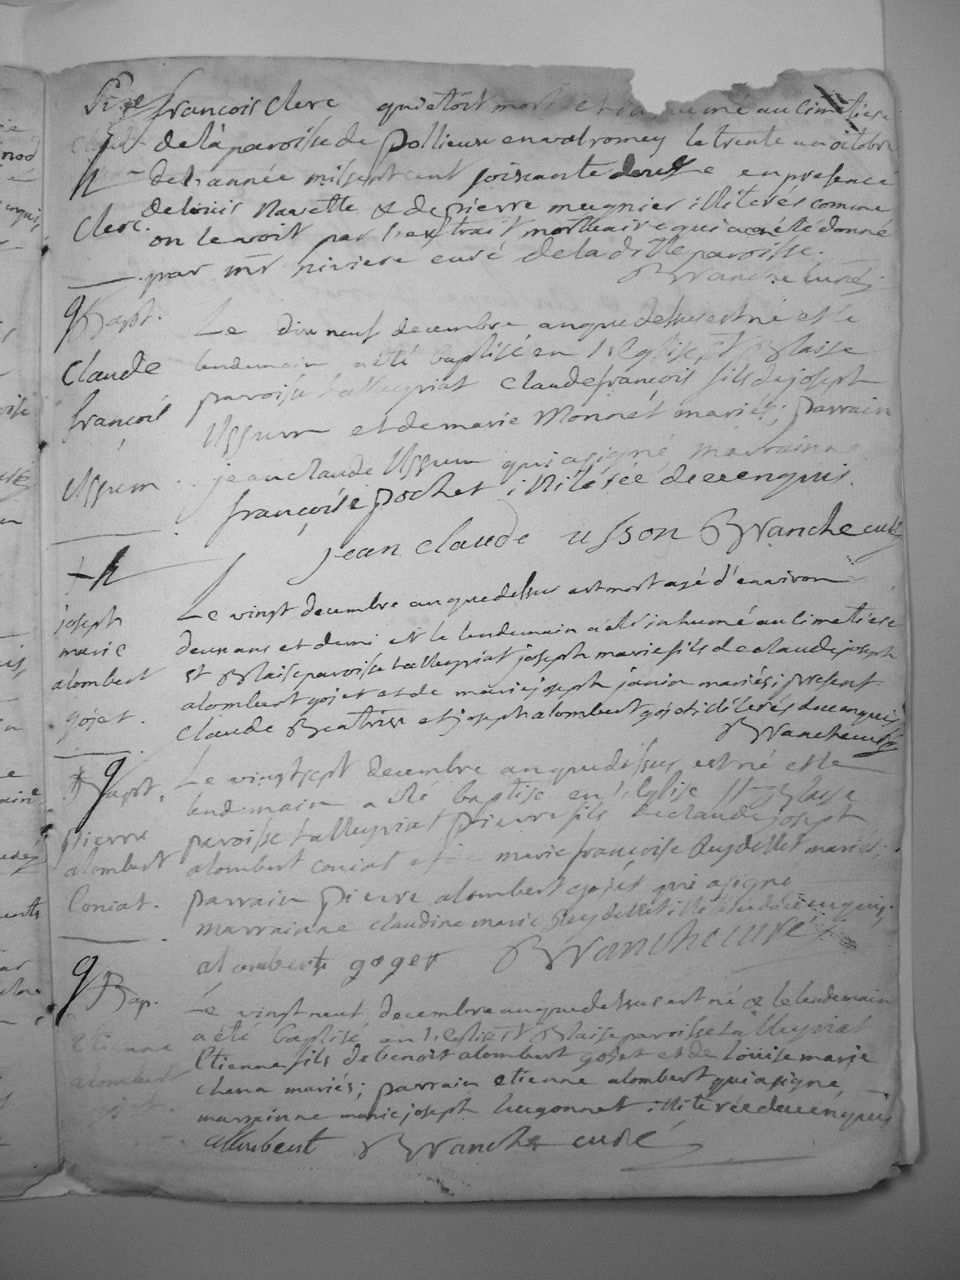 françois Clerc qui étoit mort et inhumé au cimetiere
de la paroisse de pollieux en valromey le trente un octobre
de l'année mil sept cent soixante douze en presence
de loüis Navette & de pierre meugnier illiterés comme
Clerc.
on le voit par l'extrait mortuaire qui a été donné
par mr riviere curé de la ditte paroisse.
Branche curé
Bapt.
Le dix neuf decembre an que dessus est né et le
Claude
lendemain a été baptisé en l'eglise st Blaise
paroisse talleyriat claude françois fils de joseph
françois
Ussum et de marie Monnet mariés; parrain
Ussum
jean claude Ussum qui a signé marraine
françoise pochet illiterée de ce enquis.
jean claude usson Branche curé
joseph
Le vingt decembre an que dessus est mort agé d'environ
marie
deux ans et demi et le lendemain a été inhumé au cimetiere
st Blaise paroisse talleyriat joseph marie fils de claude joseph
alombert
alombert gojet et de marie joseph janin mariés; present
gojet.
claude Beatrix et joseph alombert gojet illiterés de ce enquis
Branche curé
Bapt.
Le vingt sept decembre an que dessus est né et le
lendemain a été baptisé en l'eglise st Blaise
pierre
paroisse talleyriat pierre fils de claude joseph
alombert
alombert coniat et de marie françoise Reydellet mariés;
Coniat.
parrain pierre alombert gojet qui a signé
marrainne claudine marie Reydellet illiterée de ce enquis.
alombert goget Branche curé
Bap.
Le vingt neuf decembre an que dessus est né & le lendemain
etienne
a été baptisé en l'eglise st Blaise paroisse talleyriat
Etienne fils de benoit alombert gojet et de loüise marie
alombert
chena mariés; parrain etienne alombert qui a signé
gojet.
marrainne marie joseph hugonnet illiterée de ce enquis
allumbert Branche curé